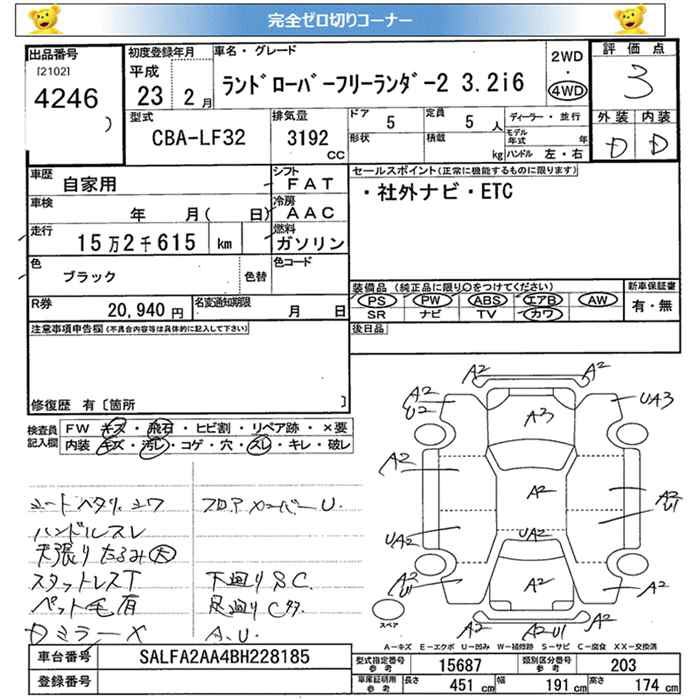 完全ゼロ切りコーナー
出品番号
[2102]
4246
)
初度登録年月
平成
23 2月
車名・グレード
ランドローバーフリーランダー2 3.2i6
2WD
・
4WD
評価点
3
外装 内装
D D
型式
CBA-LF32
排気量
3192
CC
ドア
5
形状
定員
5人
積載
kg
ディーラー・並行
モデル年式 年
ハンドル 左・右
車歴
自家用
シフト
FAT
車検
年 月( 日)
冷房
AAC
走行
15万2千615 km
燃料
ガソリン
色
ブラック
色替
色コード
R券
20,940円
名変通知期限
月 日
セールスポイント(正常に機能するものに限ります)
・社外ナビ・ETC
装備品 (純正品に限り○をつけてください)
PS PW ABS エアB AW
SR ナビ TV カワ
新車保証書
有・無
後日品
注意事項申告欄(不具合内容等は具体的に記入して下さい)
修復歴 有[箇所 ]
検査員記入欄
FW キズ・飛石・ヒビ割・リペア跡・×要
内装 キズ・汚レ・コゲ・穴・スレ・キレ・破レ
シートヘタリ、シワ
フロアカーバーU.
ハンドルスレ
天張りたるみ大
スタットレスT
下廻りSC.
ペット毛有
足廻りCサ
DミラーX
A.U.
A2 A2
A2
U2
UA3
A3
A2
A2
A2
U1
UA2 UA2
A2
U1
A2
A2
A2 A2U1 A2
スペア
A-キズ E-エクボ U-凹み W-補修跡 S-サビ C-腐食 XX-交換済
車台番号
SALFA2AA4BH228185
登録番号
型式指定番号
参考
15687
類別区分番号
参考
203
車庫証明用
参考
長さ 451 cm 幅 191 cm 高さ 174 cm